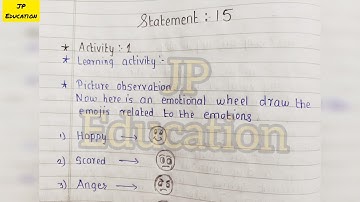 JP
EDUCATION
Statement : 15
* Activity : 1
* Learning activity :-
* Picture observation
Now here is an emotional wheel draw the
emojis related to the emotions
1) Happy →
2) Scared →
3) Anger →
JP
Education